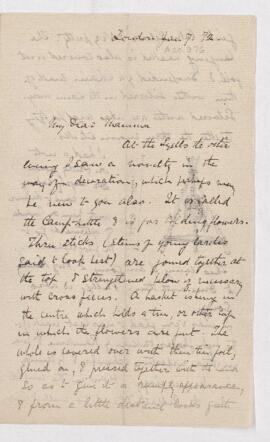 London Jan 9. 72
My Dear Mamma
At the Lyells the other
evening I saw a novelty in the
way of decoration, which perhaps may
be new to you also. It is called
the Camp-kettle & is for holding flowers.
Three sticks (stems of young larches
said to look best) are joined together at
the top & strengthened below if necessary
with cross pieces. A basket is hung in
the centre which holds a tin, or other cup
in which the flowers are put. The
whole is covered over with thin tin foil,
glued on, & pressed together
so as to give it a appearance,
& from a little distance looks quite